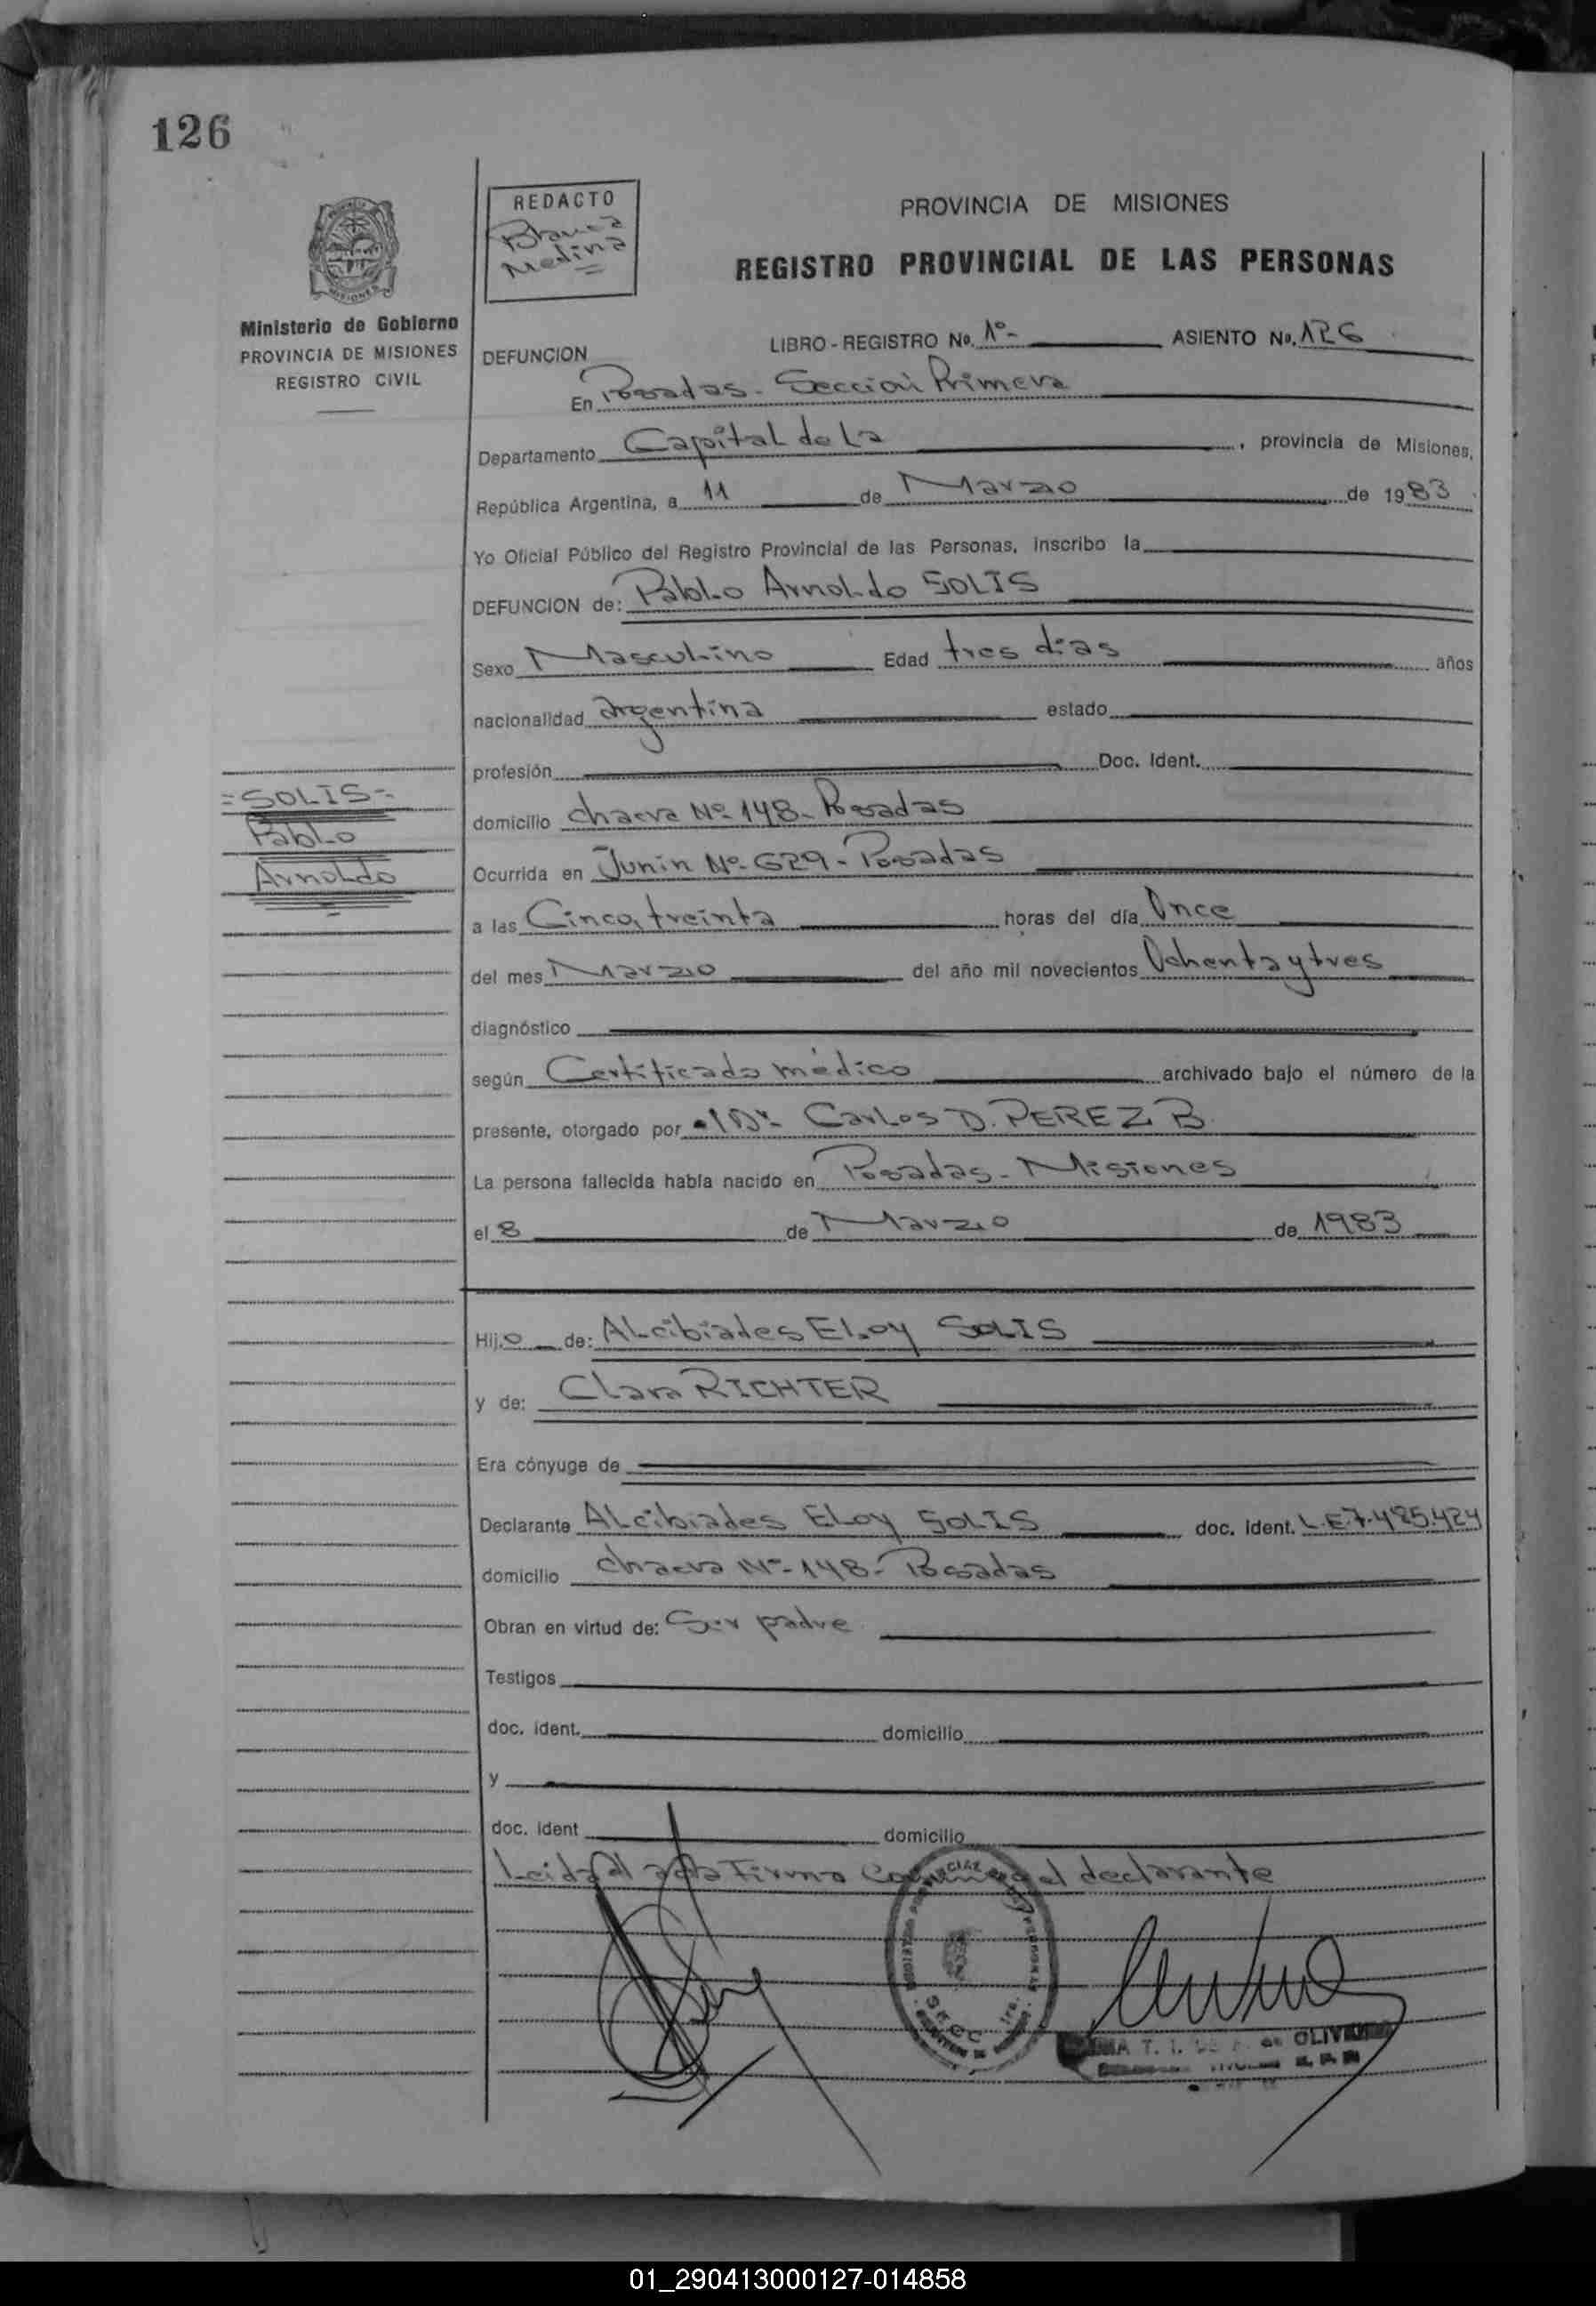 126
REDACTO
Blanca
Medina
PROVINCIA DE MISIONES
REGISTRO PROVINCIAL DE LAS PERSONAS
Ministerio de Gobierno
PROVINCIA DE MISIONES
REGISTRO CIVIL
DEFUNCION
LIBRO - REGISTRO No. 1º- ASIENTO No. 126
En Posadas - Sección Primera
Departamento Capital de La , provincia de Misiones,
República Argentina, a 11 de Marzo de 1983
Yo Oficial Público del Registro Provincial de las Personas, inscribo la
DEFUNCION de: Pablo Arnoldo SOLIS
Sexo Masculino Edad tres días años
nacionalidad argentina estado
profesión Doc. Ident.
=SOLIS=
Pablo
Arnoldo
domicilio chacra Nº 148- Posadas
Ocurrida en Junín Nº- 629- Posadas
a las Cinco, treinta horas del día Once
del mes Marzo del año mil novecientos Ochenta y tres
diagnóstico
según Certificado médico archivado bajo el número de la
presente, otorgado por Dr. Carlos D. PEREZ B.
La persona fallecida había nacido en Posadas - Misiones
el 8 de Marzo de 1983
Hijo de: Alcibiades Eloy SOLIS
y de: Clara RICHTER
Era cónyuge de
Declarante Alcibiades Eloy SOLIS doc. ident. L.E. 7.485.424
domicilio chacra Nº- 148- Posadas
Obran en virtud de: Ser padre
Testigos
doc. ident. domicilio
y
doc. ident domicilio
Leida el acta Firma el declarante
SECC 1ra.
T. I. de OLIVEIRA
01_290413000127-014858